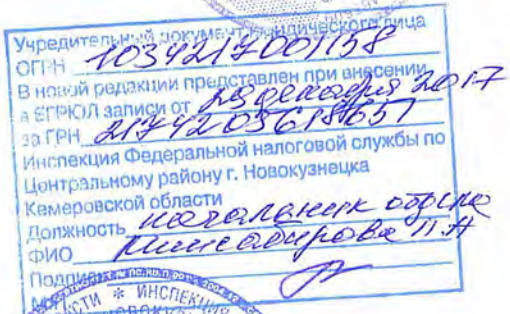 Учредительный документ юридического лица
ОГРН 1034217001158
В новой редакции представлен при внесении
в ЕГРЮЛ записи от 29 декабря 2017
за ГРН 2174205618657
Инспекция Федеральной налоговой службы по
Центральному району г. Новокузнецка
Кемеровской области
Должность начальник отдела
ФИО
Подпись
М.П.
СТИ * ИНСПЕКЦИЯ